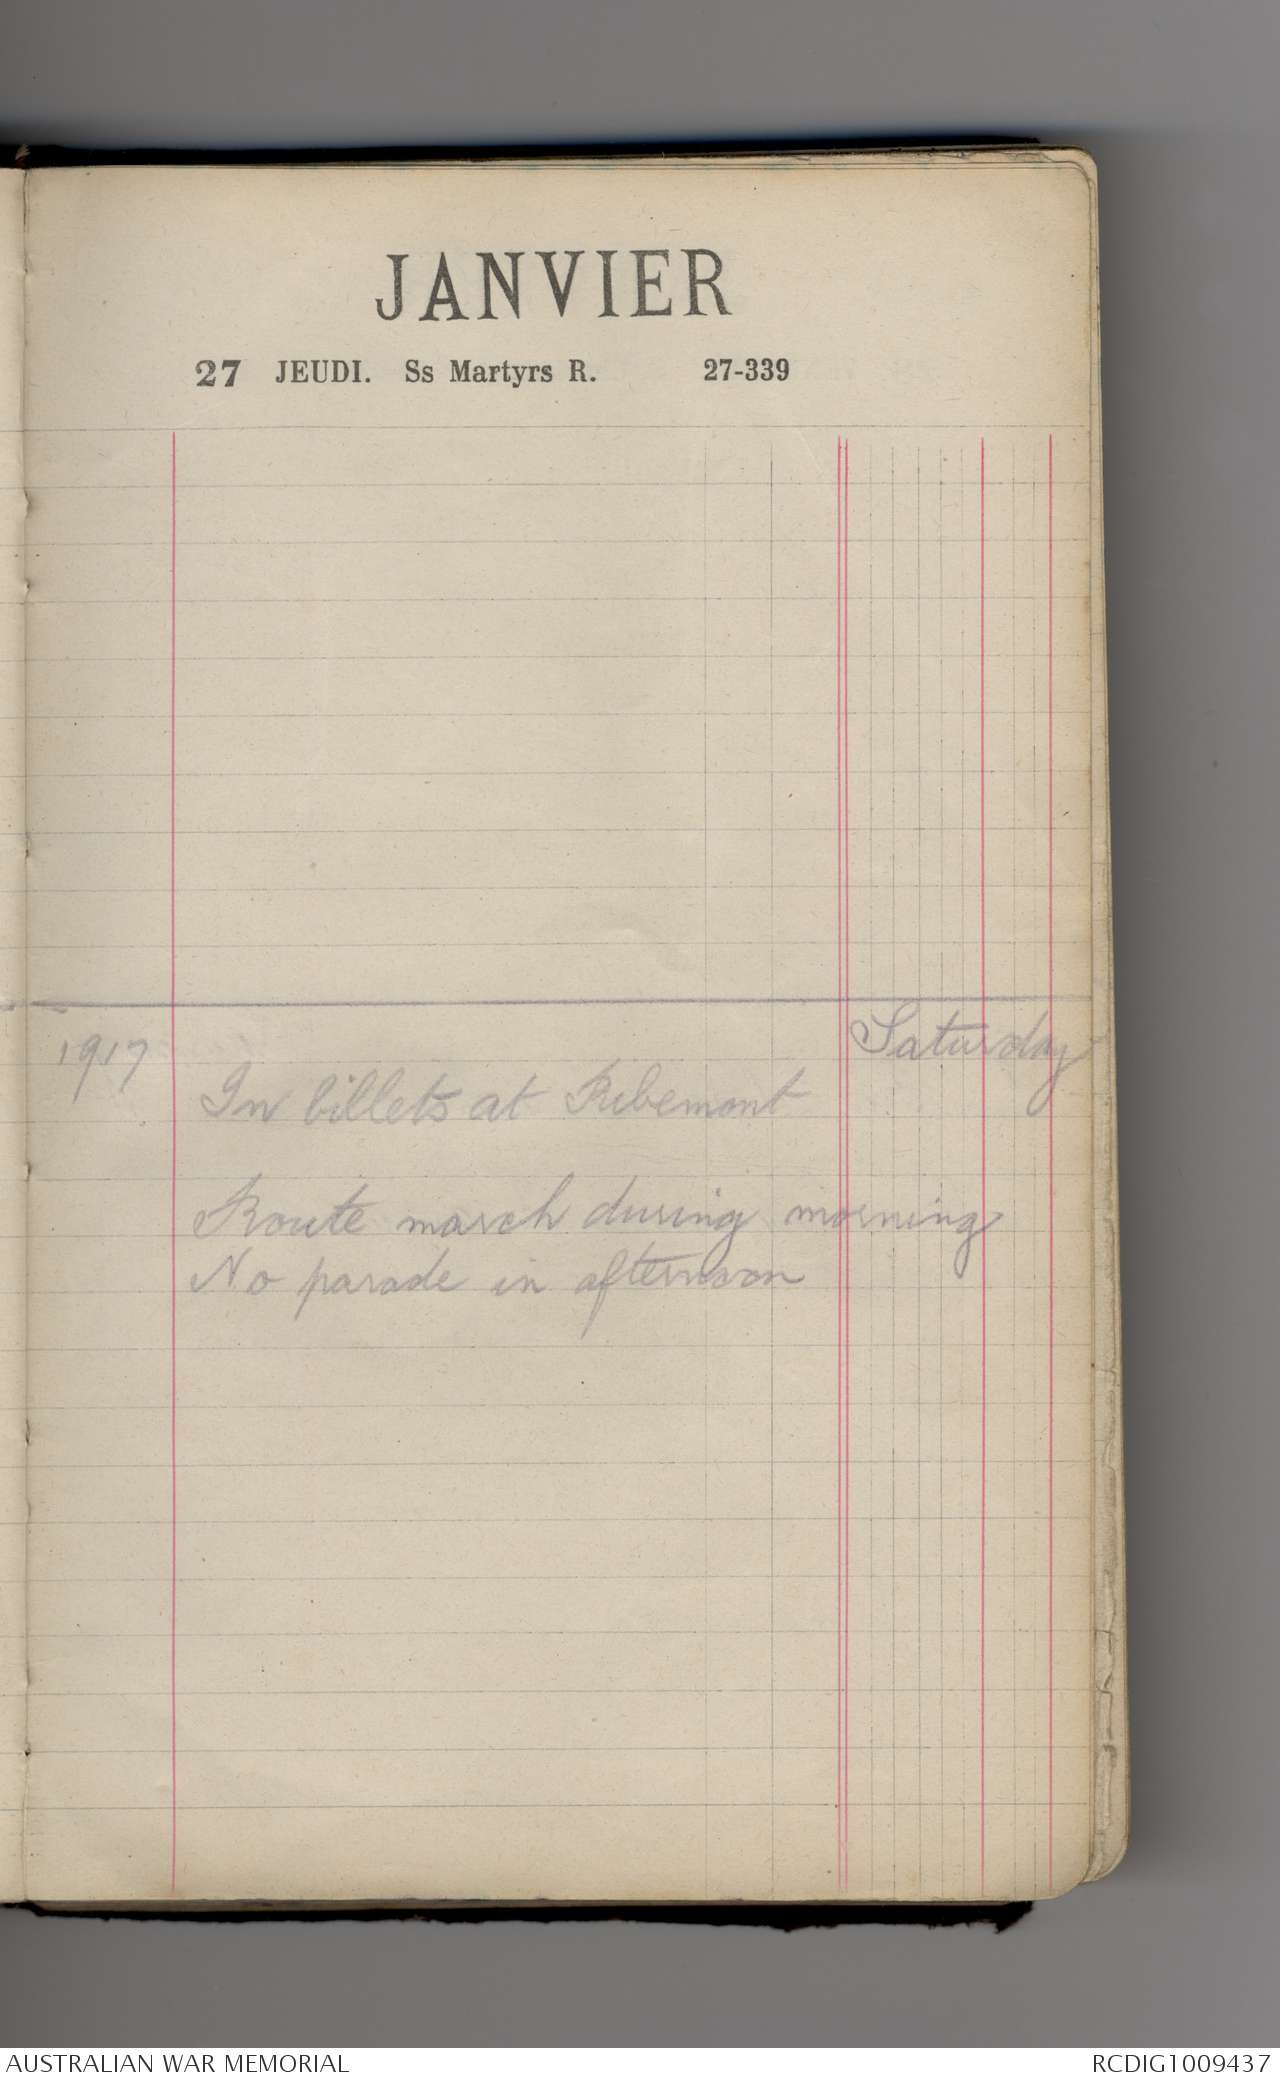 JANVIER
27 JEUDI. Ss Martyrs R. 27-339
1917 Saturday
In billets at Ribemont
Route march during morning
No parade in afternoon
AUSTRALIAN WAR MEMORIAL RCDIG1009437